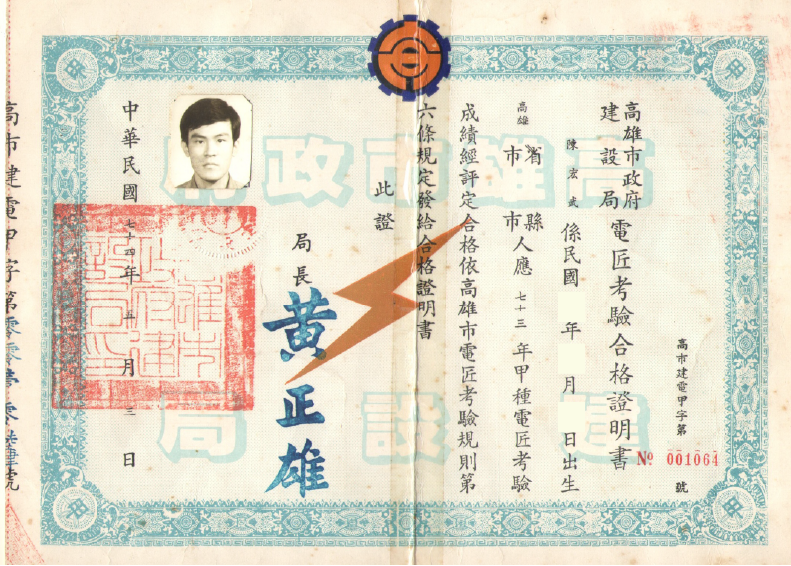 高雄市政府
建設局
電匠考驗合格證明書
高市建電甲字第
№ 001064
號
陳宏武 係民國 年 月 日出生
高雄 省市 縣市人應 七十三 年甲種電匠考驗
成績經評定合格依高雄市電匠考驗規則第
六條規定發給合格證明書
此證
局長 黃正雄
中華民國 七十四 年 五 月 三 日
高市建電甲字第零零壹零陸肆號
高雄市政府
建設局